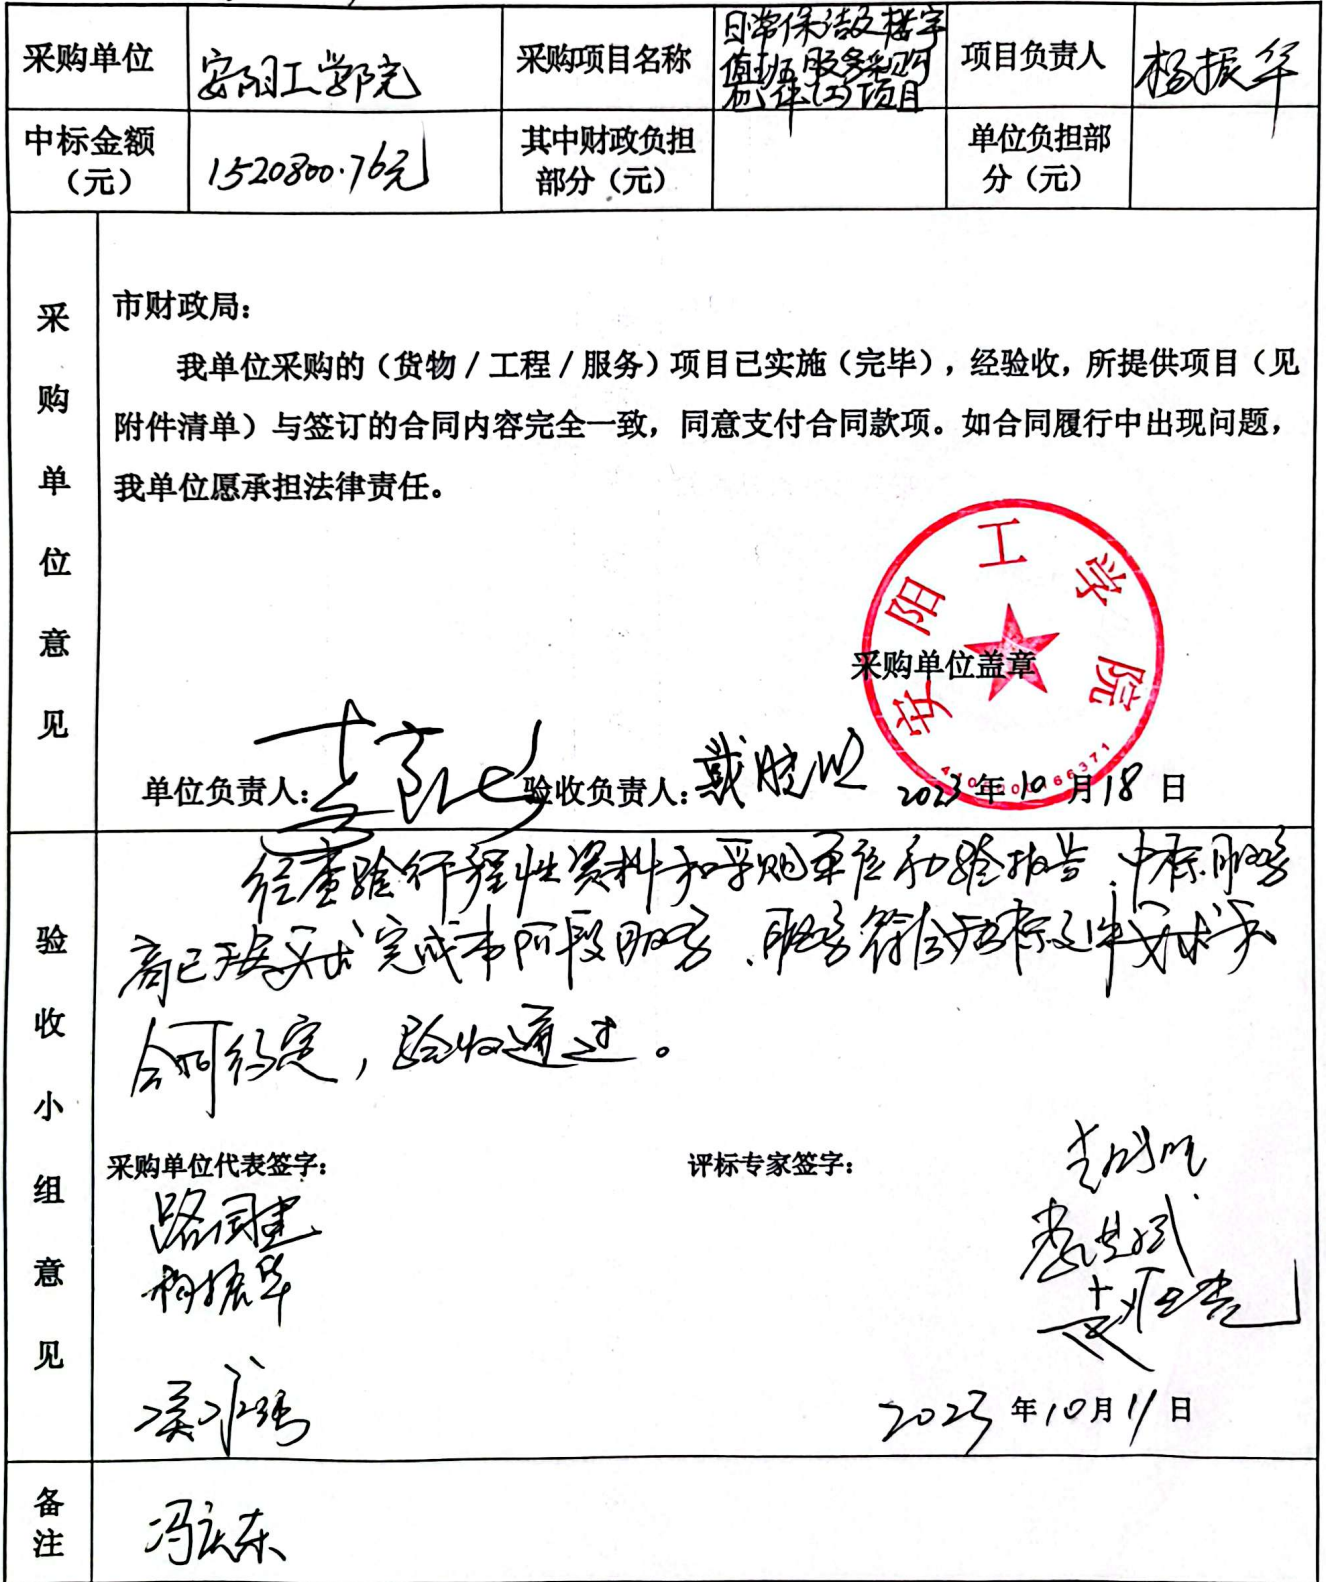 采购单位 安阳工学院 采购项目名称 日常保洁及楼宇 项目负责人 杨振华
值班服务采购
包件(二)项目
中标金额 1520800.76元 其中财政负担 单位负担部
（元） 部分（元） 分（元）
采购单位意见
市财政局：
我单位采购的（货物/工程/服务）项目已实施（完毕），经验收，所提供项目（见
附件清单）与签订的合同内容完全一致，同意支付合同款项。如合同履行中出现问题，
我单位愿承担法律责任。
安阳工学院
采购单位盖章
单位负责人： 验收负责人： 2023年10月18日
验收小组意见
经查验行程性资料和采购单位初验报告，中标服务
商已按要求完成本阶段服务，服务符合招标文件要求及
合同约定，验收通过。
采购单位代表签字： 评标专家签字：
路同建
杨振华
2023年10月11日
备注 冯庆东